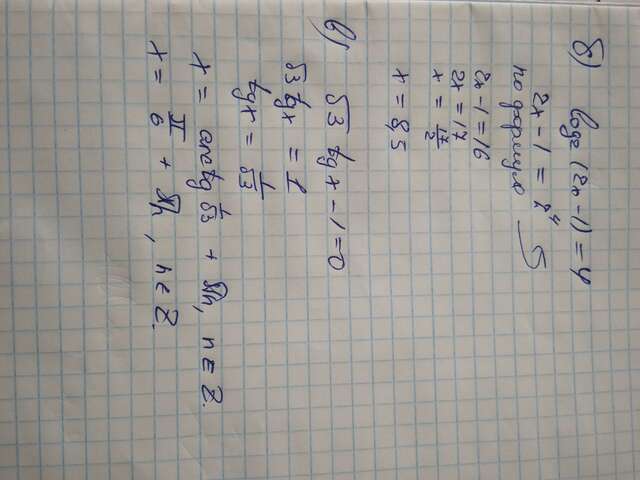 б) log₂ (2x - 1) = 4
2x - 1 = 2⁴
по формуле 5
2x - 1 = 16
2x = 17
x = 17/2
x = 8,5
в) √3 tg x - 1 = 0
√3 tg x = 1
tg x = 1/√3
x = arctg 1/√3 + πn, n ∈ Z.
x = π/6 + πn, n ∈ Z.